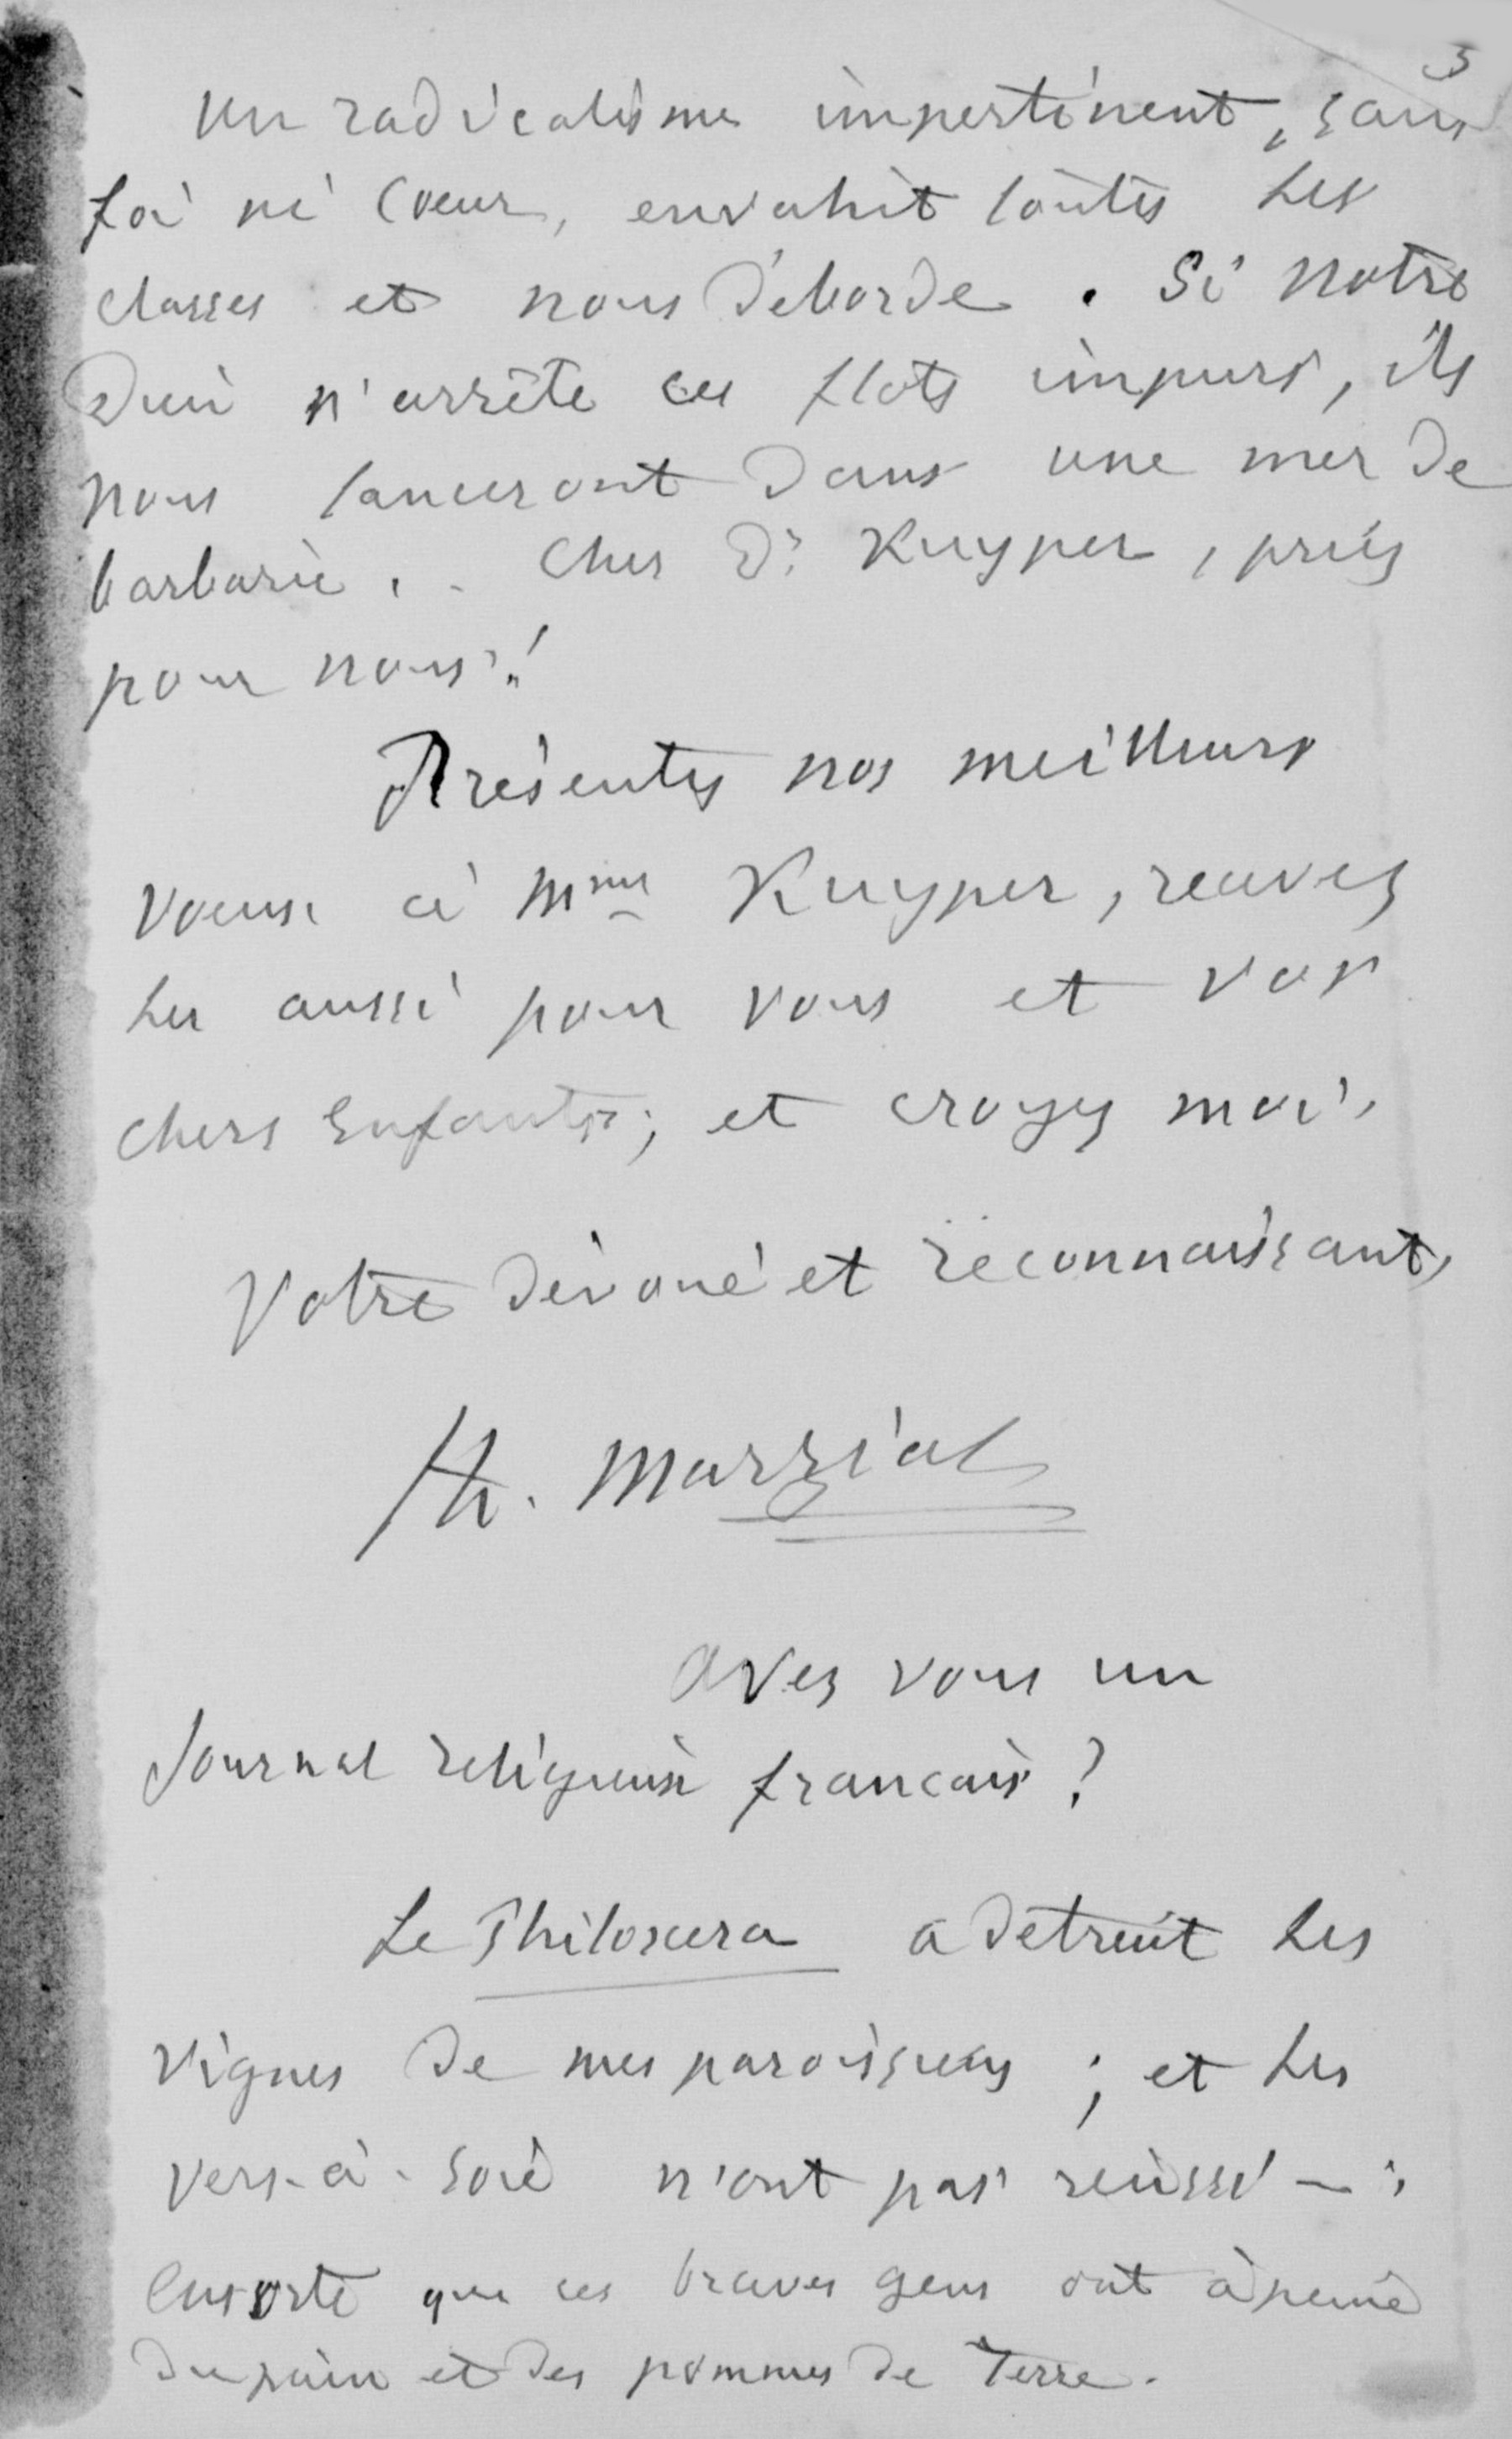 3
Un radicalisme impertinent, sans
foi ni coeur, envahit toutes les
classes et nous déborde. Si notre
Dieu n'arrête ces flots impurs, ils
nous lanceront dans une mer de
barbarie. - Cher Dr Kuyper, priez
pour nous!
Présentez nos meilleurs
voeux à Mme Kuyper, recevez
les aussi pour vous et vos
chers Enfants; et croyez moi
Votre dévoué et reconnaissant,
Th. Marzial
Avez vous un
Journal religieux francais?
Le Philoxera a detruit les
vignes de mes paroissiens; et les
vers-à-soie n'ont pas réussi -
Ensorte que ces braves gens ont à peine
du pain et des pommes de Terre.